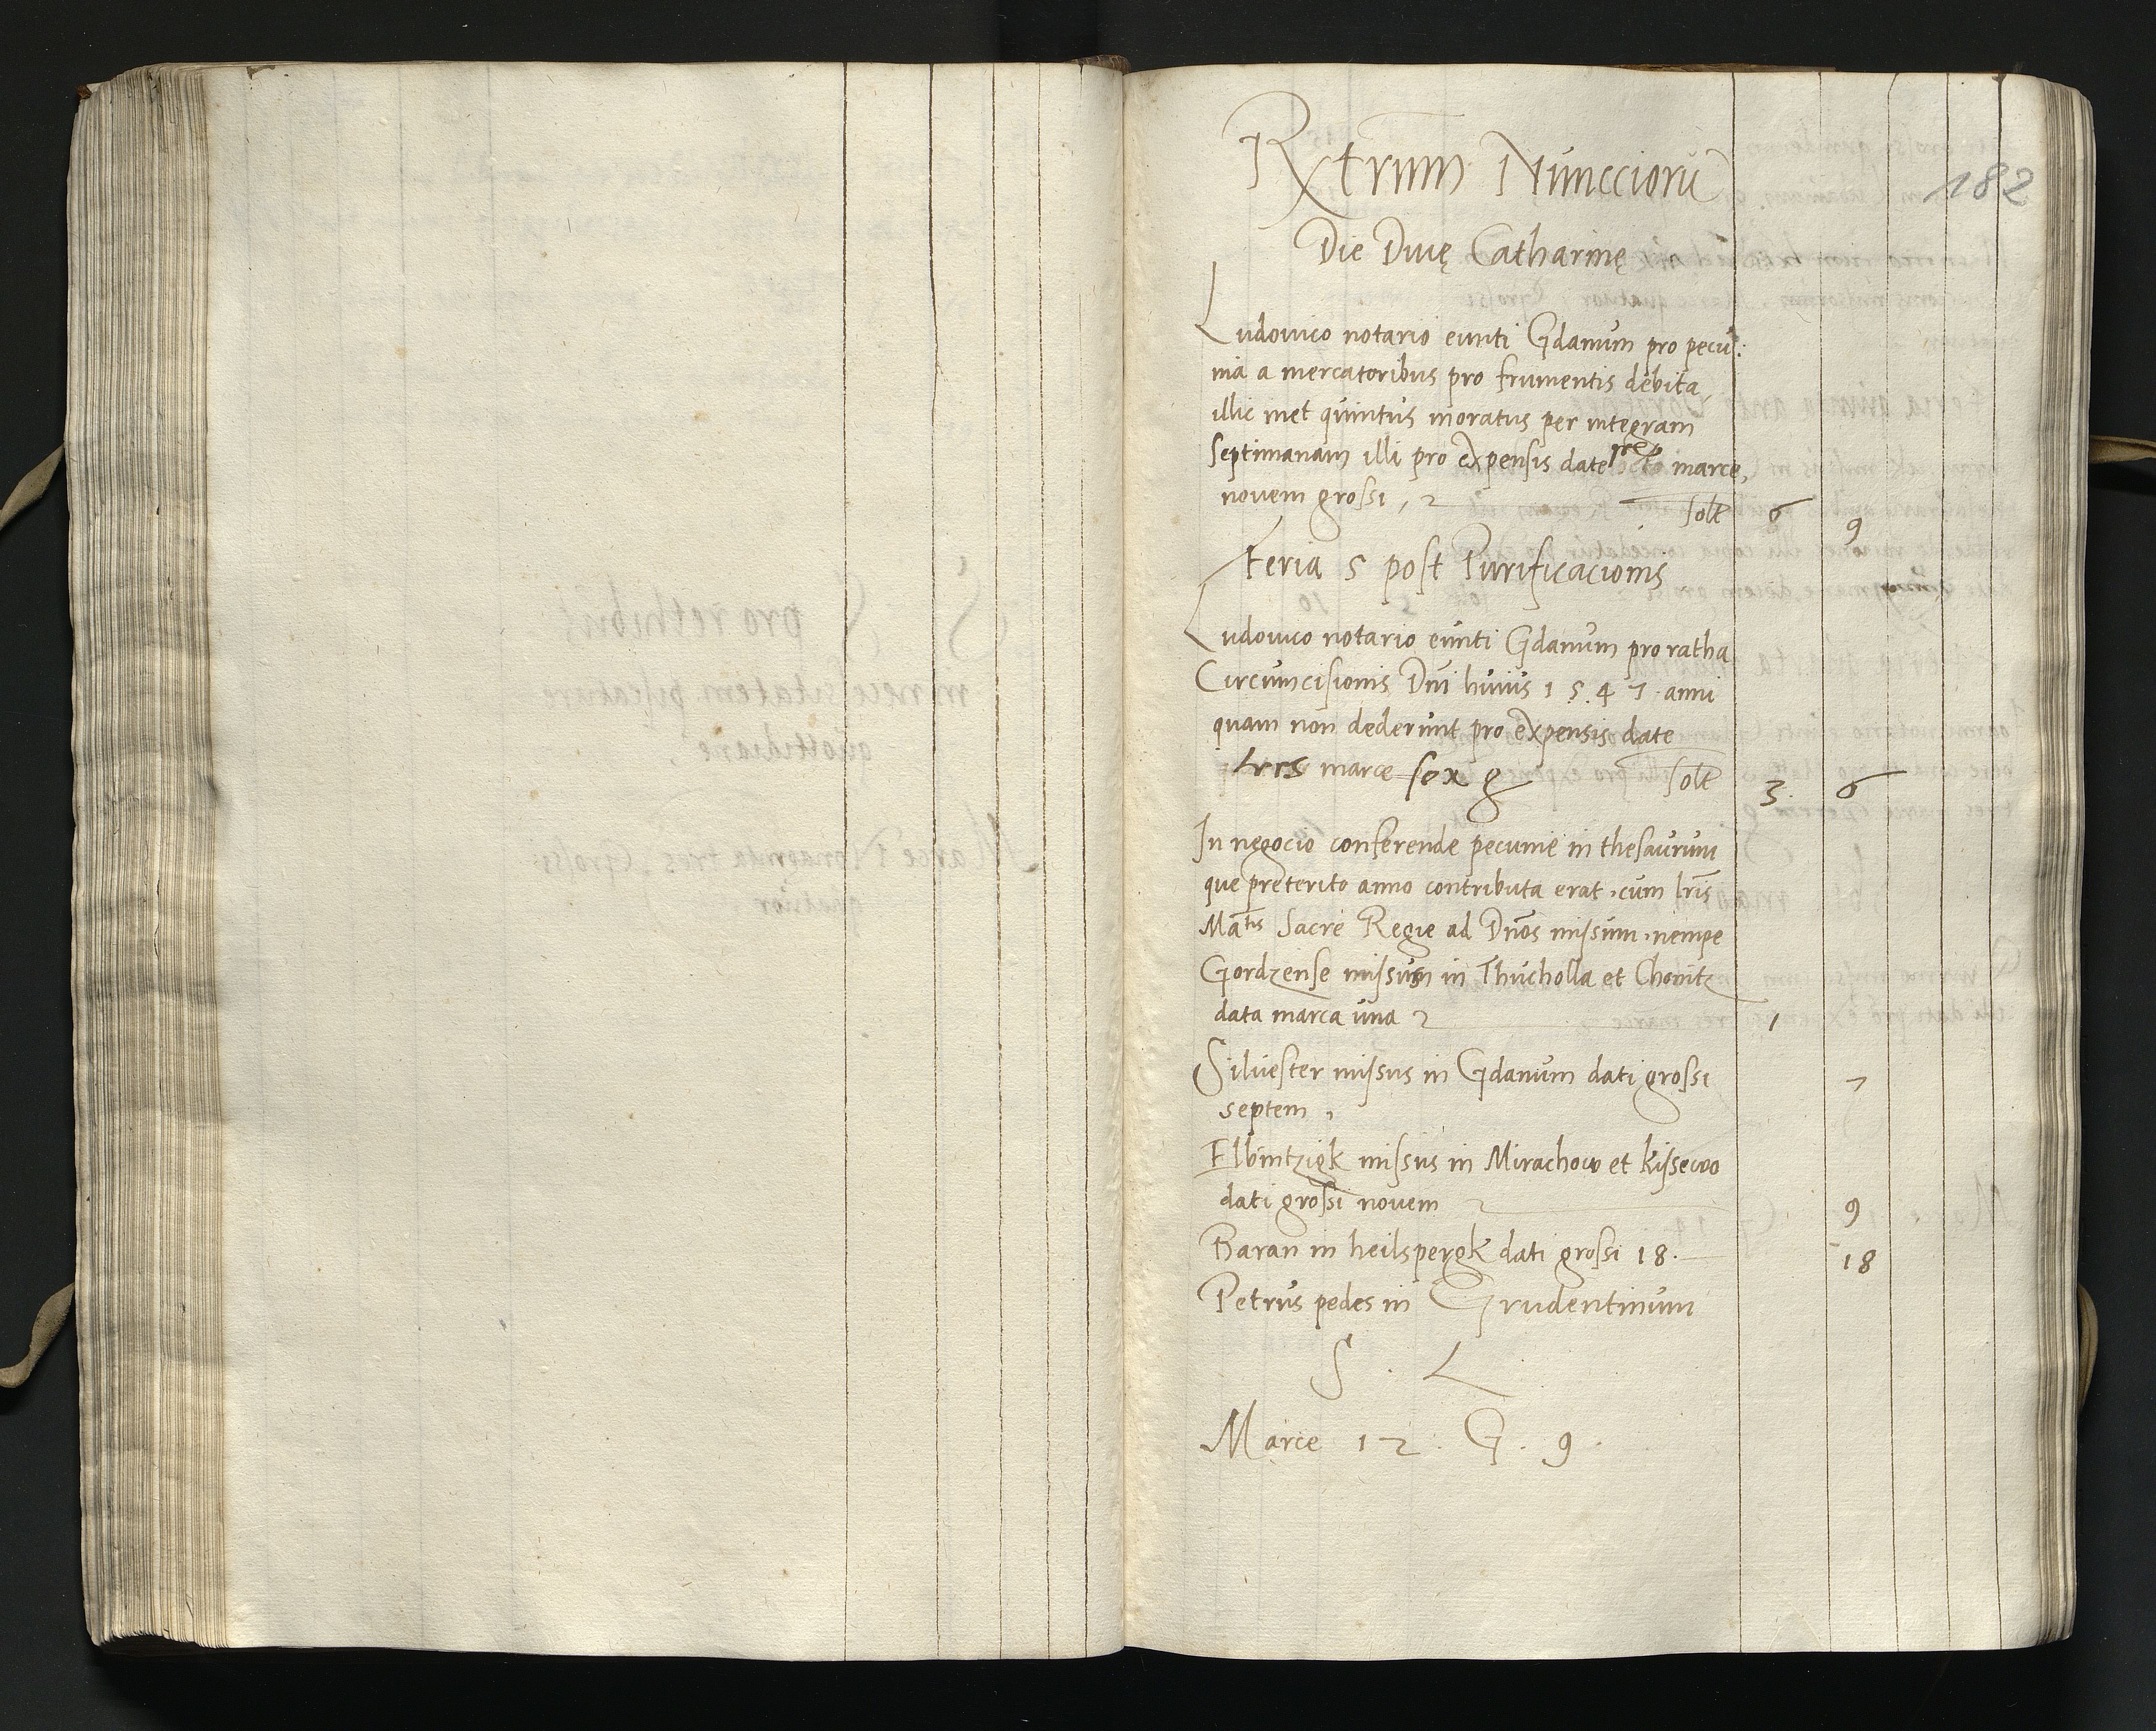 Rxtrum Nuncciorũ
182
Die Diuę Catharinę
Ludouico notario eunti Gdanum pro pecu:
nia a mercatoribus pro frumentis debita,
illic met quintus moratus per integram
Septimanam illi pro expensis date sex octo marce,
novem grossi, solt 6 9
Feria 5 post Purificacionis
Ludouico notario eunti Gdanum pro ratha
Circumcisionis Dni huius 1547 anni
quam non dederunt pro expensis date
tres marce sex g solt 3 6
In negocio conferende pecunie in thesaurum
que preterito anno contributa erat, cum lris
Matis Sacre Regie ad Dnos missum, nempe
Gordzense missum in Thucholia et Chonitz
data marca una 1
Siluester missus in Gdanum dati grossi 7
septem,
Elbintzigk missus in Mirachow et kissewo
dati grossi novem 9
Baran in heilspergk dati grossi 18. 18
Petrus pedes in Grudentinum
S. L.
Marce 12. G. 9.